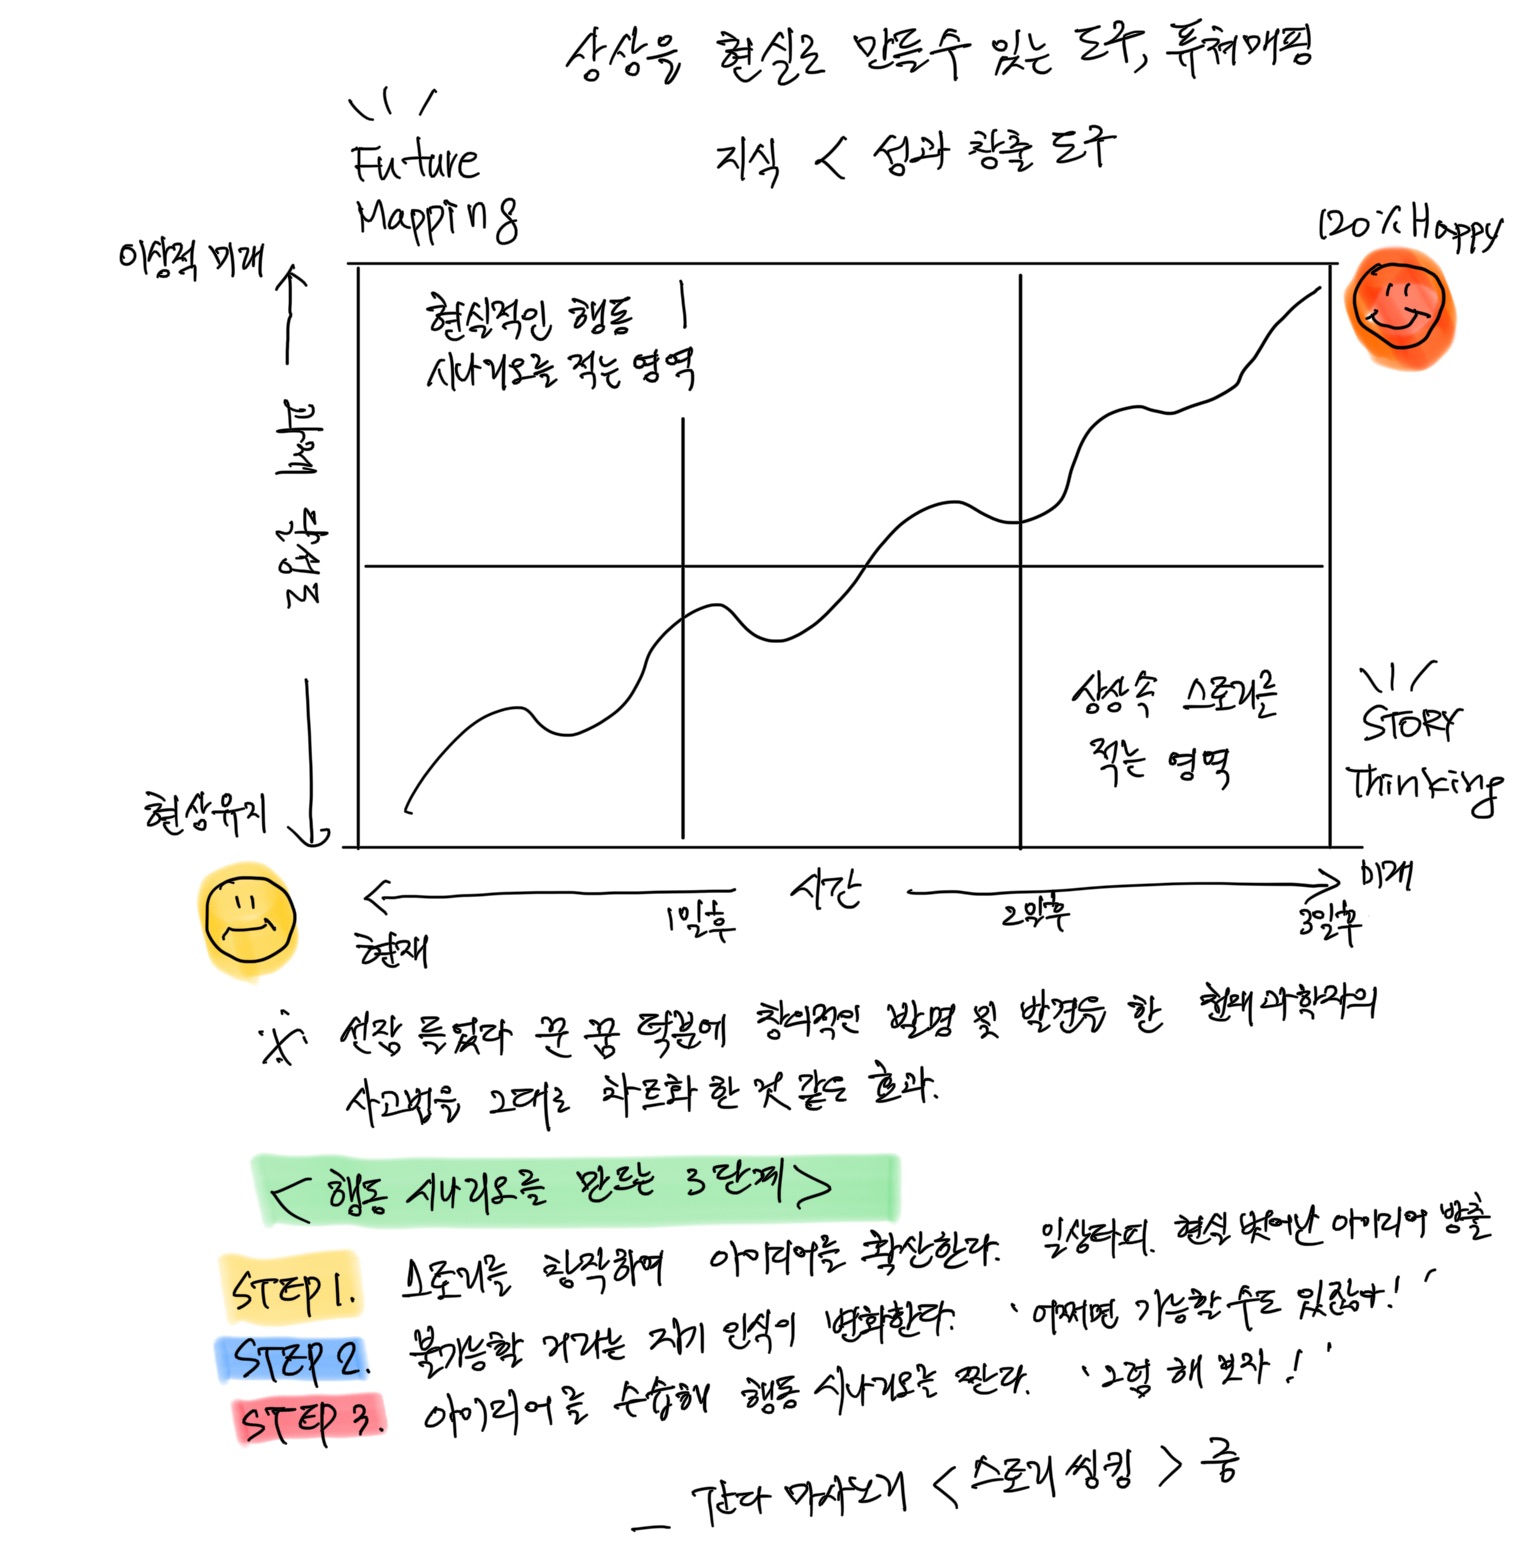 상상을 현실로 만들수 있는 도구, 퓨쳐매핑
Future
Mapping
지식 < 성과 창출 도구
120% Happy
이상적 미래
현실적인 행동
시나리오를 적는 영역
과제 달성도
상상 속 스토리를
적는 영역
STORY
Thinking
현상유지
시간
미래
1일후
2일후
3일후
현재
※ 선잠 들었다 꾼 꿈 덕분에 창의적인 발명 및 발견을 한 천재과학자의
사고법을 그대로 차트화 한 것 같은 효과.
< 행동 시나리오를 만드는 3단계 >
STEP 1. 스토리를 창작하여 아이디어를 확산한다. 일상타파. 현실 벗어난 아이디어 방출
STEP 2. 불가능할 거라는 자기 인식이 변화한다. '어쩌면 가능할 수도 있잖아!'
STEP 3. 아이디어를 수습해 행동 시나리오를 짠다. '그럼 해 보자!'
_ 간다 마사노리 <스토리씽킹> 중